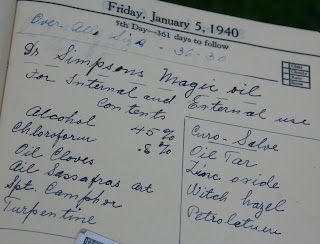 Friday, January 5, 1940
5th Day—361 days to follow
Over All Size - 36-30
Dr Simpsons Magic oil
For Internal and External use
Contents
Alcohol 45%
Chloroform .8%
Oil Cloves
Oil Sassafras art
Spt. Camphor
Turpentine
Curo-Salve
Oil Tar
Zinc oxide
Witch hazel
Petroletum